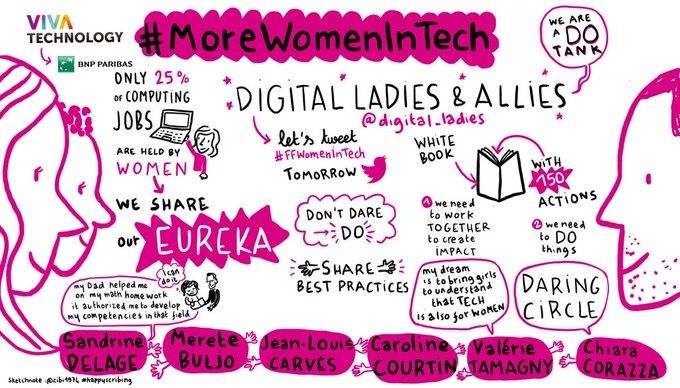 VIVA
TECHNOLOGY
BNP PARIBAS
#MoreWomenInTech
WE ARE
A DO
TANK
ONLY 25%
OF COMPUTING
JOBS
ARE HELD BY
WOMEN
DIGITAL LADIES & ALLIES
@digital_ladies
let's tweet
#FFWomenInTech
TOMORROW
WHITE
BOOK
WITH
150
ACTIONS
WE SHARE
our EUREKA
DON'T DARE
DO
1 we need
to work
TOGETHER
to create
IMPACT
2 we need
to DO
things
SHARE
BEST PRACTICES
I can
do it
my Dad helped me
on my math homework
it authorized me to develop
my competencies in that field
my dream
is to bring girls
to understand
that TECH
is also for WOMEN
DARING
CIRCLE
Sandrine
DELAGE
Merete
BULJO
Jean-Louis
CARVÈS
Caroline
COURTIN
Valérie
TAMAGNY
Chiara
CORAZZA
Sketchnote : @cibi1974 #happyscribing